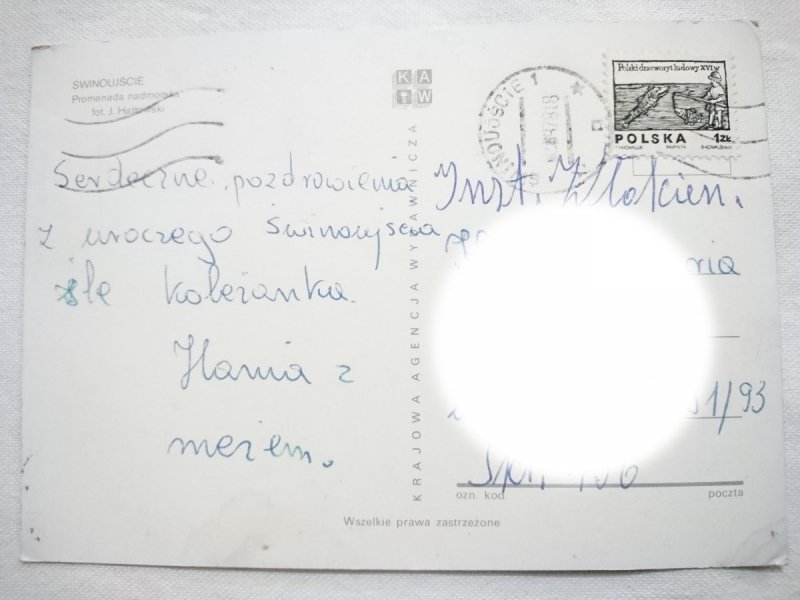 ŚWINOUJŚCIE
Promenada nadmorska
fot. J. Hattowski
KAW
ŚWINOUJŚCIE 1
Polski drzeworyt ludowy XVI w
POLSKA 1 ZŁ
Serdeczne pozdrowienia
z uroczego Świnoujścia
śle koleżanka
Hania z
mężem.
KRAJOWA AGENCJA WYDAWNICZA
Inst. Włókien.
1/93
ozn. kod.
poczta
Wszelkie prawa zastrzeżone